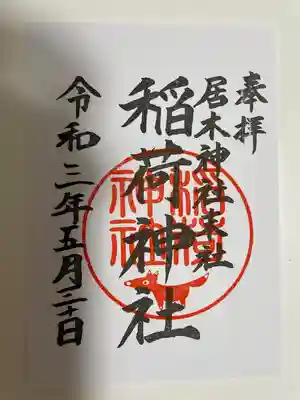 奉拝
居木神社末社
稲荷神社
稲荷神社
令和三年五月二十日